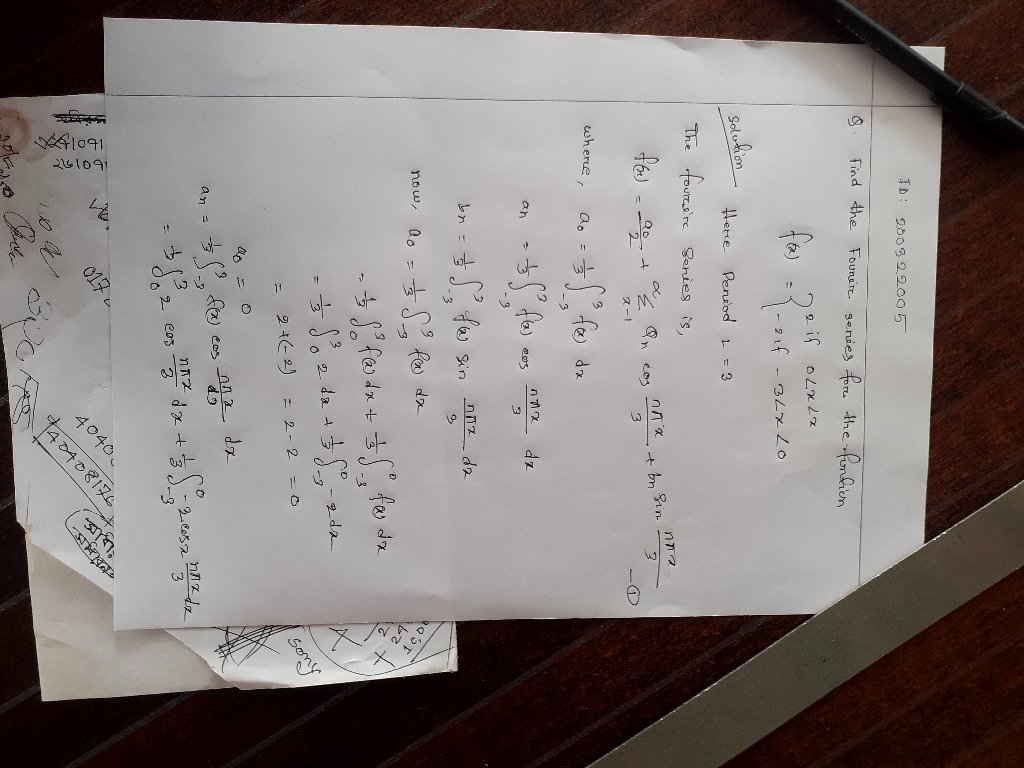 ID: 200322005
Q. Find the Fourier series for the funtion
f(x) = { 2 if 0<x<x
-2 if -3<x<0
Solution Here Period L = 3
The fourier series is,
f(x) = a0/2 + ∞ Σ x-1 an cos nπx/3 + bn sin nπx/3 —①
where, a0 = 1/3 ∫_-3^3 f(x) dx
an = 1/3 ∫_-3^3 f(x) cos nπx/3 dx
bn = 1/3 ∫_-3^3 f(x) sin nπx/3 dx
now, a0 = 1/3 ∫_-3^3 f(x) dx
= 1/3 ∫_0^3 f(x) dx + 1/3 ∫_-3^0 f(x) dx
= 1/3 ∫_0^3 2 dx + 1/3 ∫_-3^0 -2 dx
= 2+(-2) = 2-2 = 0
a0 = 0
an = 1/3 ∫_-3^3 f(x) cos nπx/d3 dx
= 1/3 ∫_0^3 2 cos nπx/3 dx + 1/3 ∫_-3^0 -2 cosx nπx/3 dx
sony
017
4040
40408176